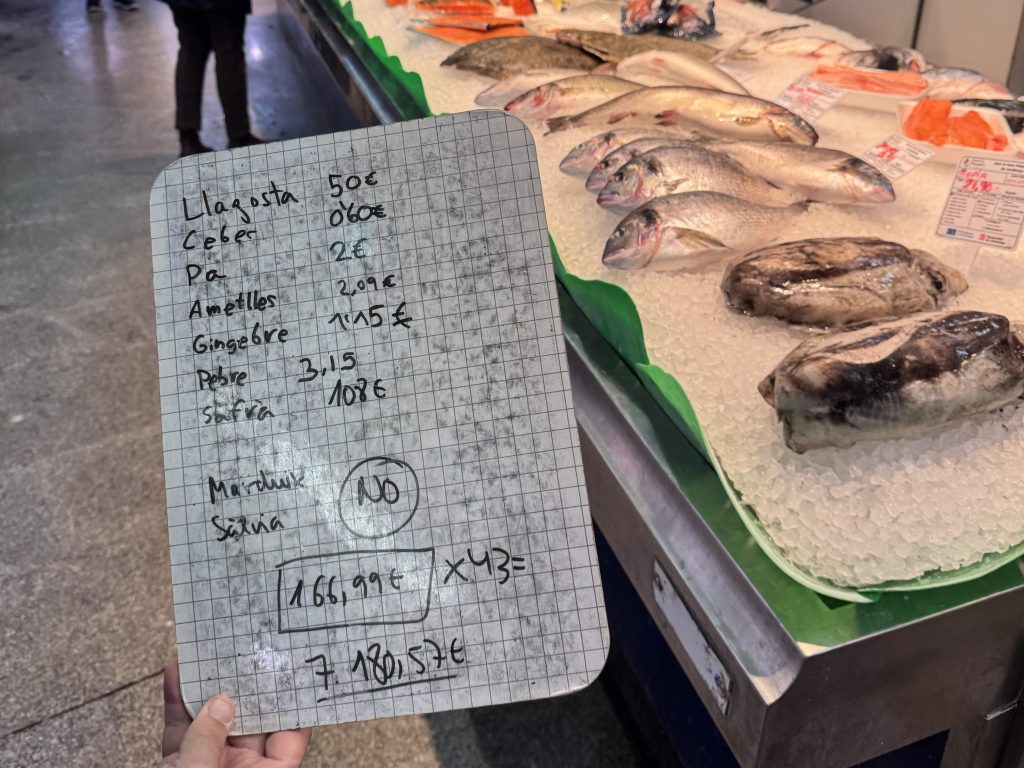 Llagosta 50€
Ceber 0'60€
Pa 2€
Ametlles 2,09€
Gingebre 1'15€
Pebre 3,15
Safrà 108€
Marduix NO
Sàlvia
166,99€ x43=
7.180,57€